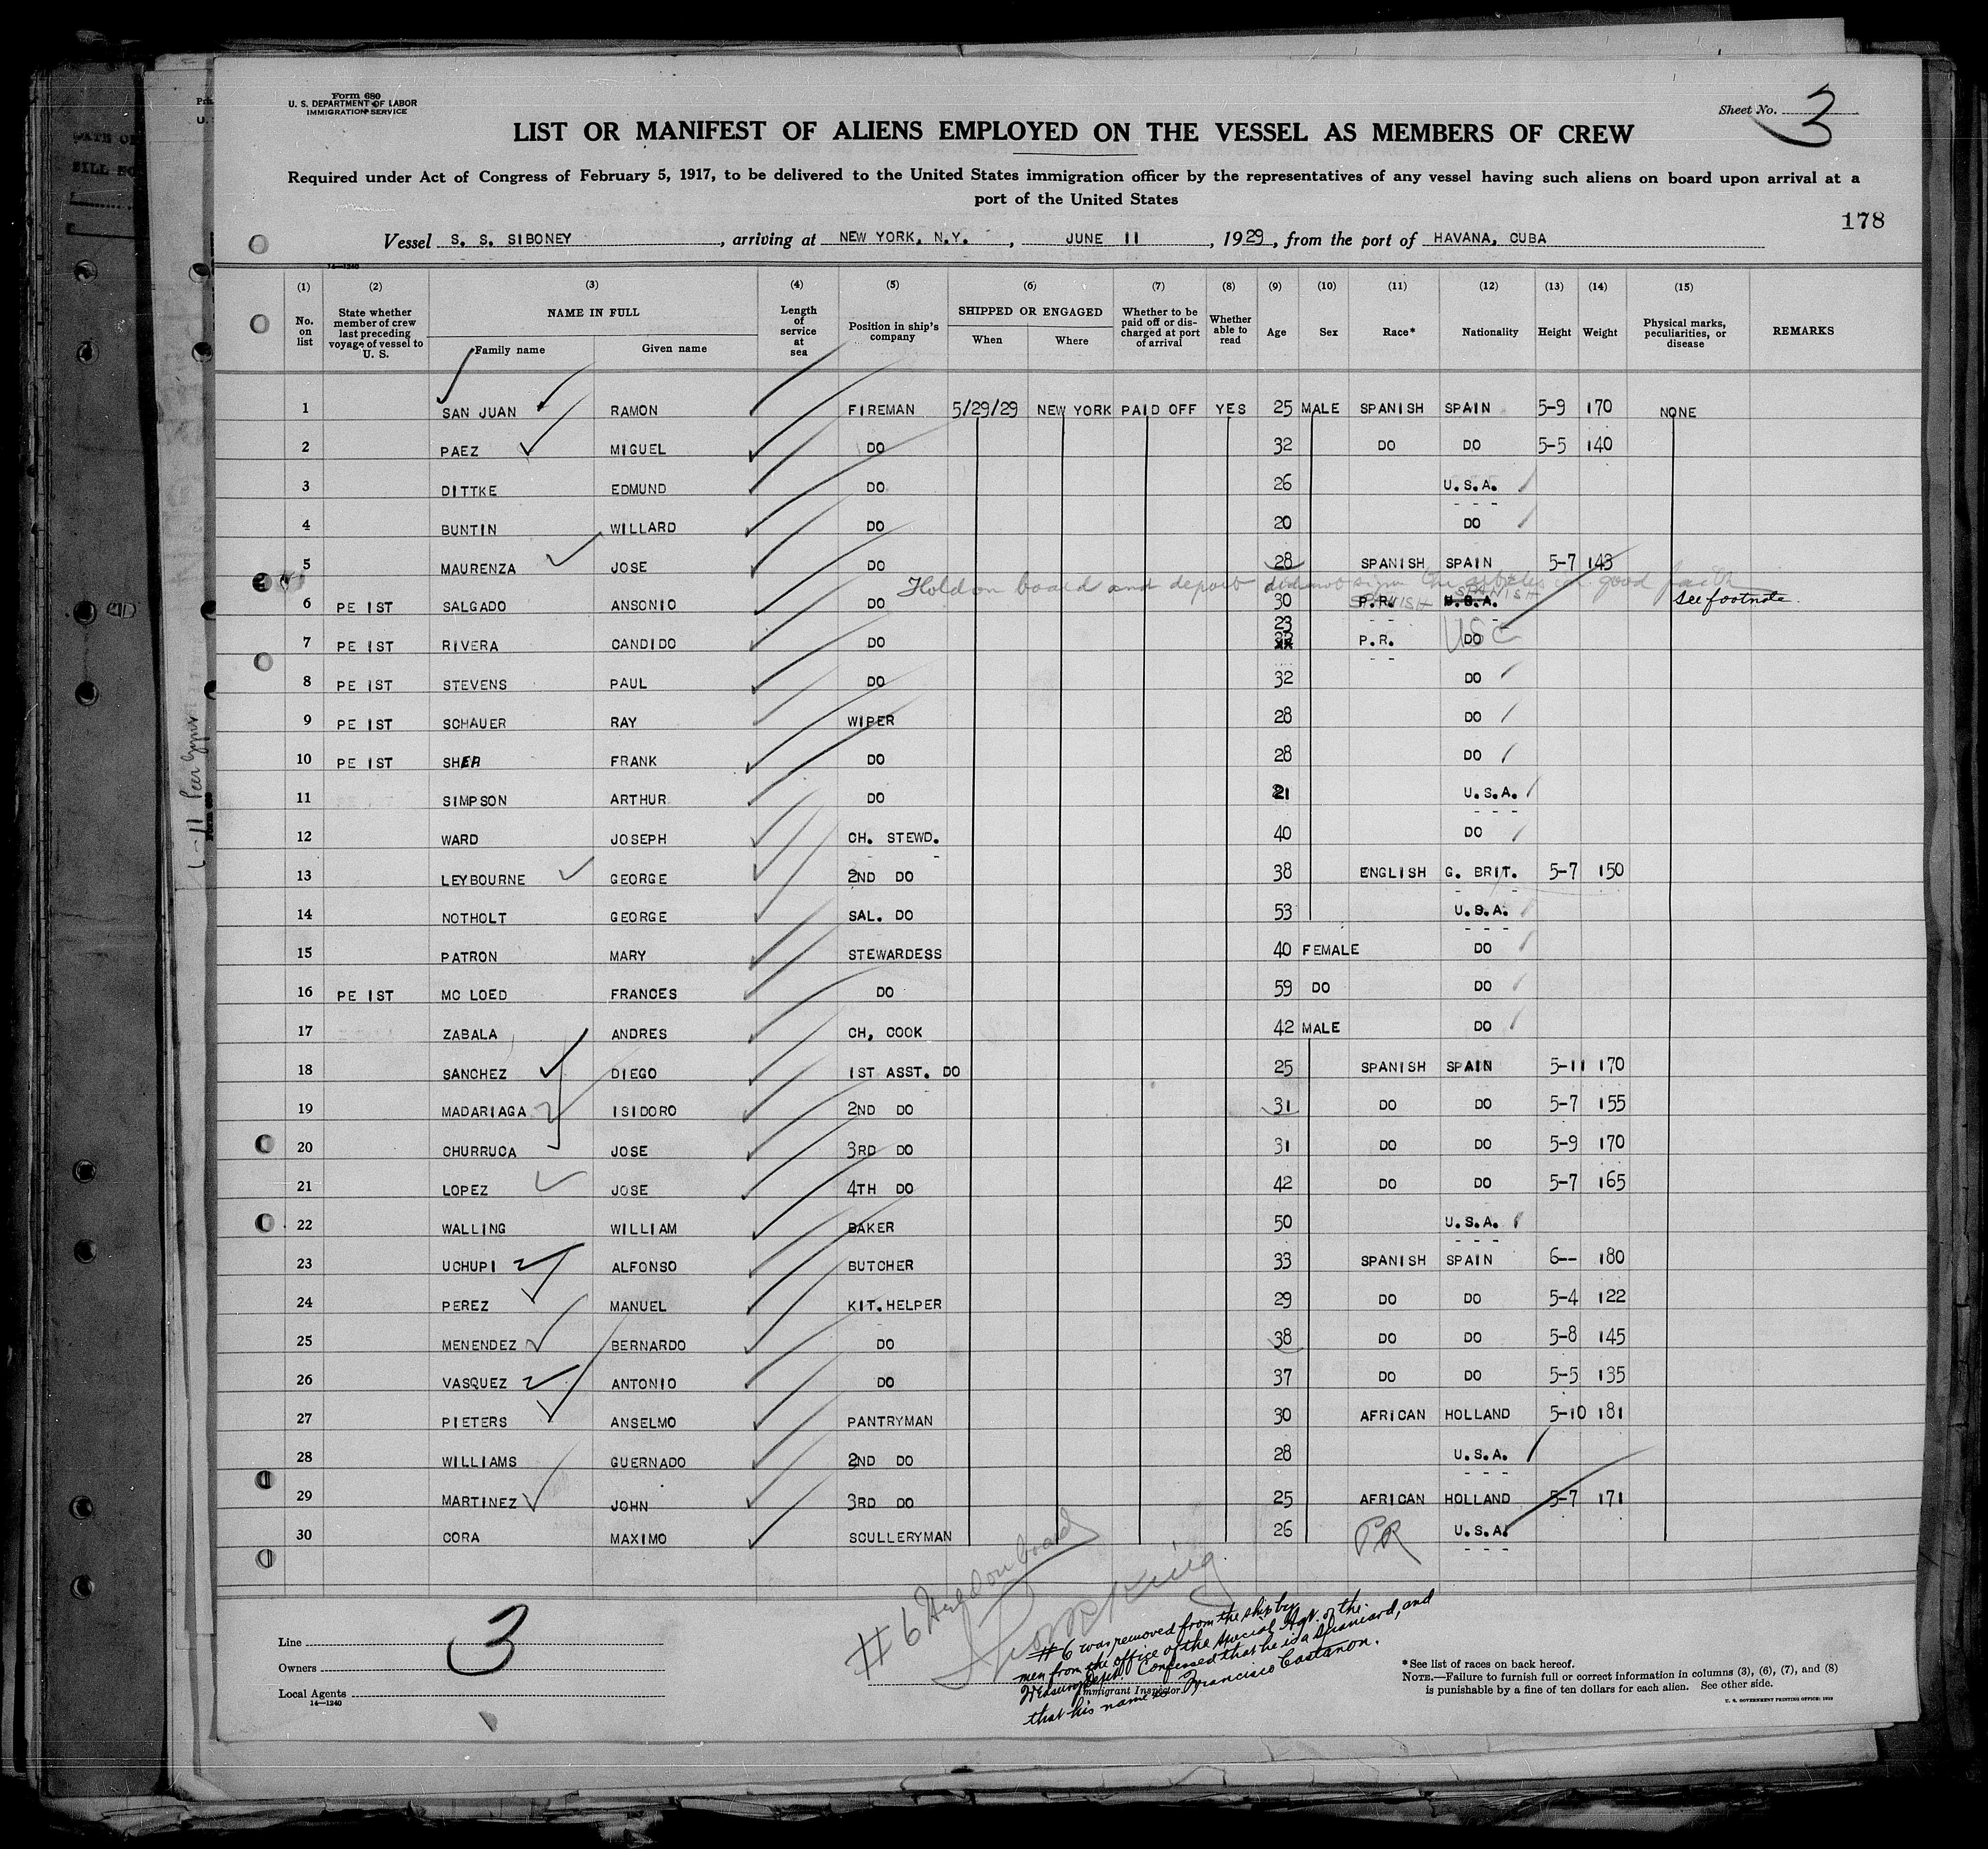 Form 680
U. S. DEPARTMENT OF LABOR
IMMIGRATION SERVICE
Sheet No. 3
LIST OR MANIFEST OF ALIENS EMPLOYED ON THE VESSEL AS MEMBERS OF CREW
Required under Act of Congress of February 5, 1917, to be delivered to the United States immigration officer by the representatives of any vessel having such aliens on board upon arrival at a
port of the United States
178
Vessel S. S. SIBONEY, arriving at NEW YORK, N.Y., JUNE 11, 1929, from the port of HAVANA, CUBA
14—1240
(1) (2) (3) (4) (5) (6) (7) (8) (9) (10) (11) (12) (13) (14) (15)
No. on list State whether member of crew last preceding voyage of vessel to U. S. NAME IN FULL Family name Given name Length of service at sea Position in ship's company SHIPPED OR ENGAGED When Where Whether to be paid off or discharged at port of arrival Whether able to read Age Sex Race* Nationality Height Weight Physical marks, peculiarities, or disease REMARKS
1 SAN JUAN RAMON FIREMAN 5/29/29 NEW YORK PAID OFF YES 25 MALE SPANISH SPAIN 5-9 170 NONE
2 PAEZ MIGUEL DO 32 DO DO 5-5 140
3 DITTKE EDMUND DO 26 U.S.A.
4 BUNTIN WILLARD DO 20 DO
5 MAURENZA JOSE DO 28 SPANISH SPAIN 5-7 143
Hold on board and deport did not sign the articles in good faith
6 PE IST SALGADO ANSONIO DO 30 P.R. SPANISH U.S.A. SPANISH see footnote.
7 PE IST RIVERA CANDIDO DO 23 P.R. DO USC
8 PE IST STEVENS PAUL DO 32 DO
9 PE IST SCHAUER RAY WIPER 28 DO
10 PE IST SHER FRANK DO 28 DO
11 SIMPSON ARTHUR DO 21 U.S.A.
12 WARD JOSEPH CH. STEWD. 40 DO
13 LEYBOURNE GEORGE 2ND DO 38 ENGLISH G. BRIT. 5-7 150
14 NOTHOLT GEORGE SAL. DO 53 U.S.A.
15 PATRON MARY STEWARDESS 40 FEMALE DO
16 PE IST MC LOED FRANCES DO 59 DO DO
17 ZABALA ANDRES CH, COOK 42 MALE DO
18 SANCHEZ DIEGO 1ST ASST. DO 25 SPANISH SPAIN 5-11 170
19 MADARIAGA ISIDORO 2ND DO 31 DO DO 5-7 155
20 CHURRUCA JOSE 3RD DO 31 DO DO 5-9 170
21 LOPEZ JOSE 4TH DO 42 DO DO 5-7 165
22 WALLING WILLIAM BAKER 50 U.S.A.
23 UCHUPI ALFONSO BUTCHER 33 SPANISH SPAIN 6-- 180
24 PEREZ MANUEL KIT.HELPER 29 DO DO 5-4 122
25 MENENDEZ BERNARDO DO 38 DO DO 5-8 145
26 VASQUEZ ANTONIO DO 37 DO DO 5-5 135
27 PIETERS ANSELMO PANTRYMAN 30 AFRICAN HOLLAND 5-10 181
28 WILLIAMS GUERNADO 2ND DO 28 U.S.A.
29 MARTINEZ JOHN 3RD DO 25 AFRICAN HOLLAND 5-7 171
30 CORA MAXIMO SCULLERYMAN 26 PR U.S.A.
# 6 Held on board
# 6 was removed from the ship by
men from the office of the special Agt. of the
Treasury Dept. Confessed that he is a Spaniard, and
that his name is Francisco Castanon.
Immigrant Inspector
3
Line
Owners
Local Agents
14—1240
*See list of races on back hereof.
NOTE.—Failure to furnish full or correct information in columns (3), (6), (7), and (8)
is punishable by a fine of ten dollars for each alien. See other side.
U. S. GOVERNMENT PRINTING OFFICE: 1929